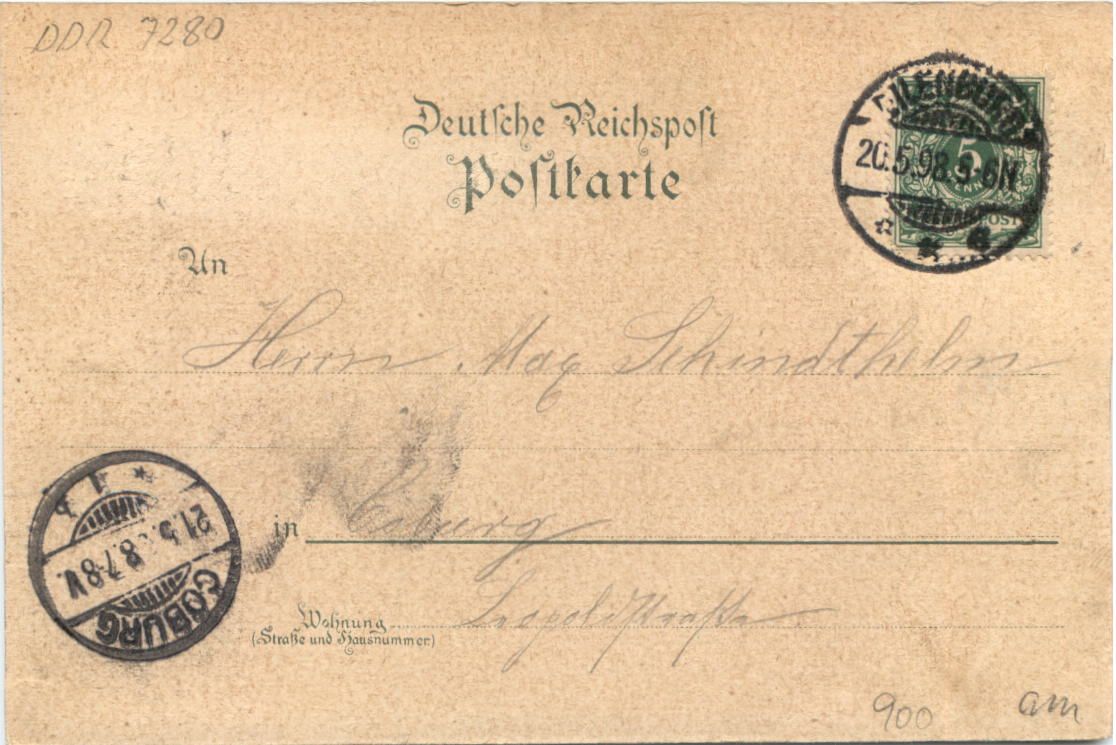 DDR 7280
Deutsche Reichspost
Postkarte
EILENBURG
20.5.98.5-6N
5
PFENNIG
An
Herrn Max Schindthelm
in Coburg
21.5.98.7-8V.
COBURG
Wohnung
(Straße und Hausnummer)
Leopoldstraße
900
am